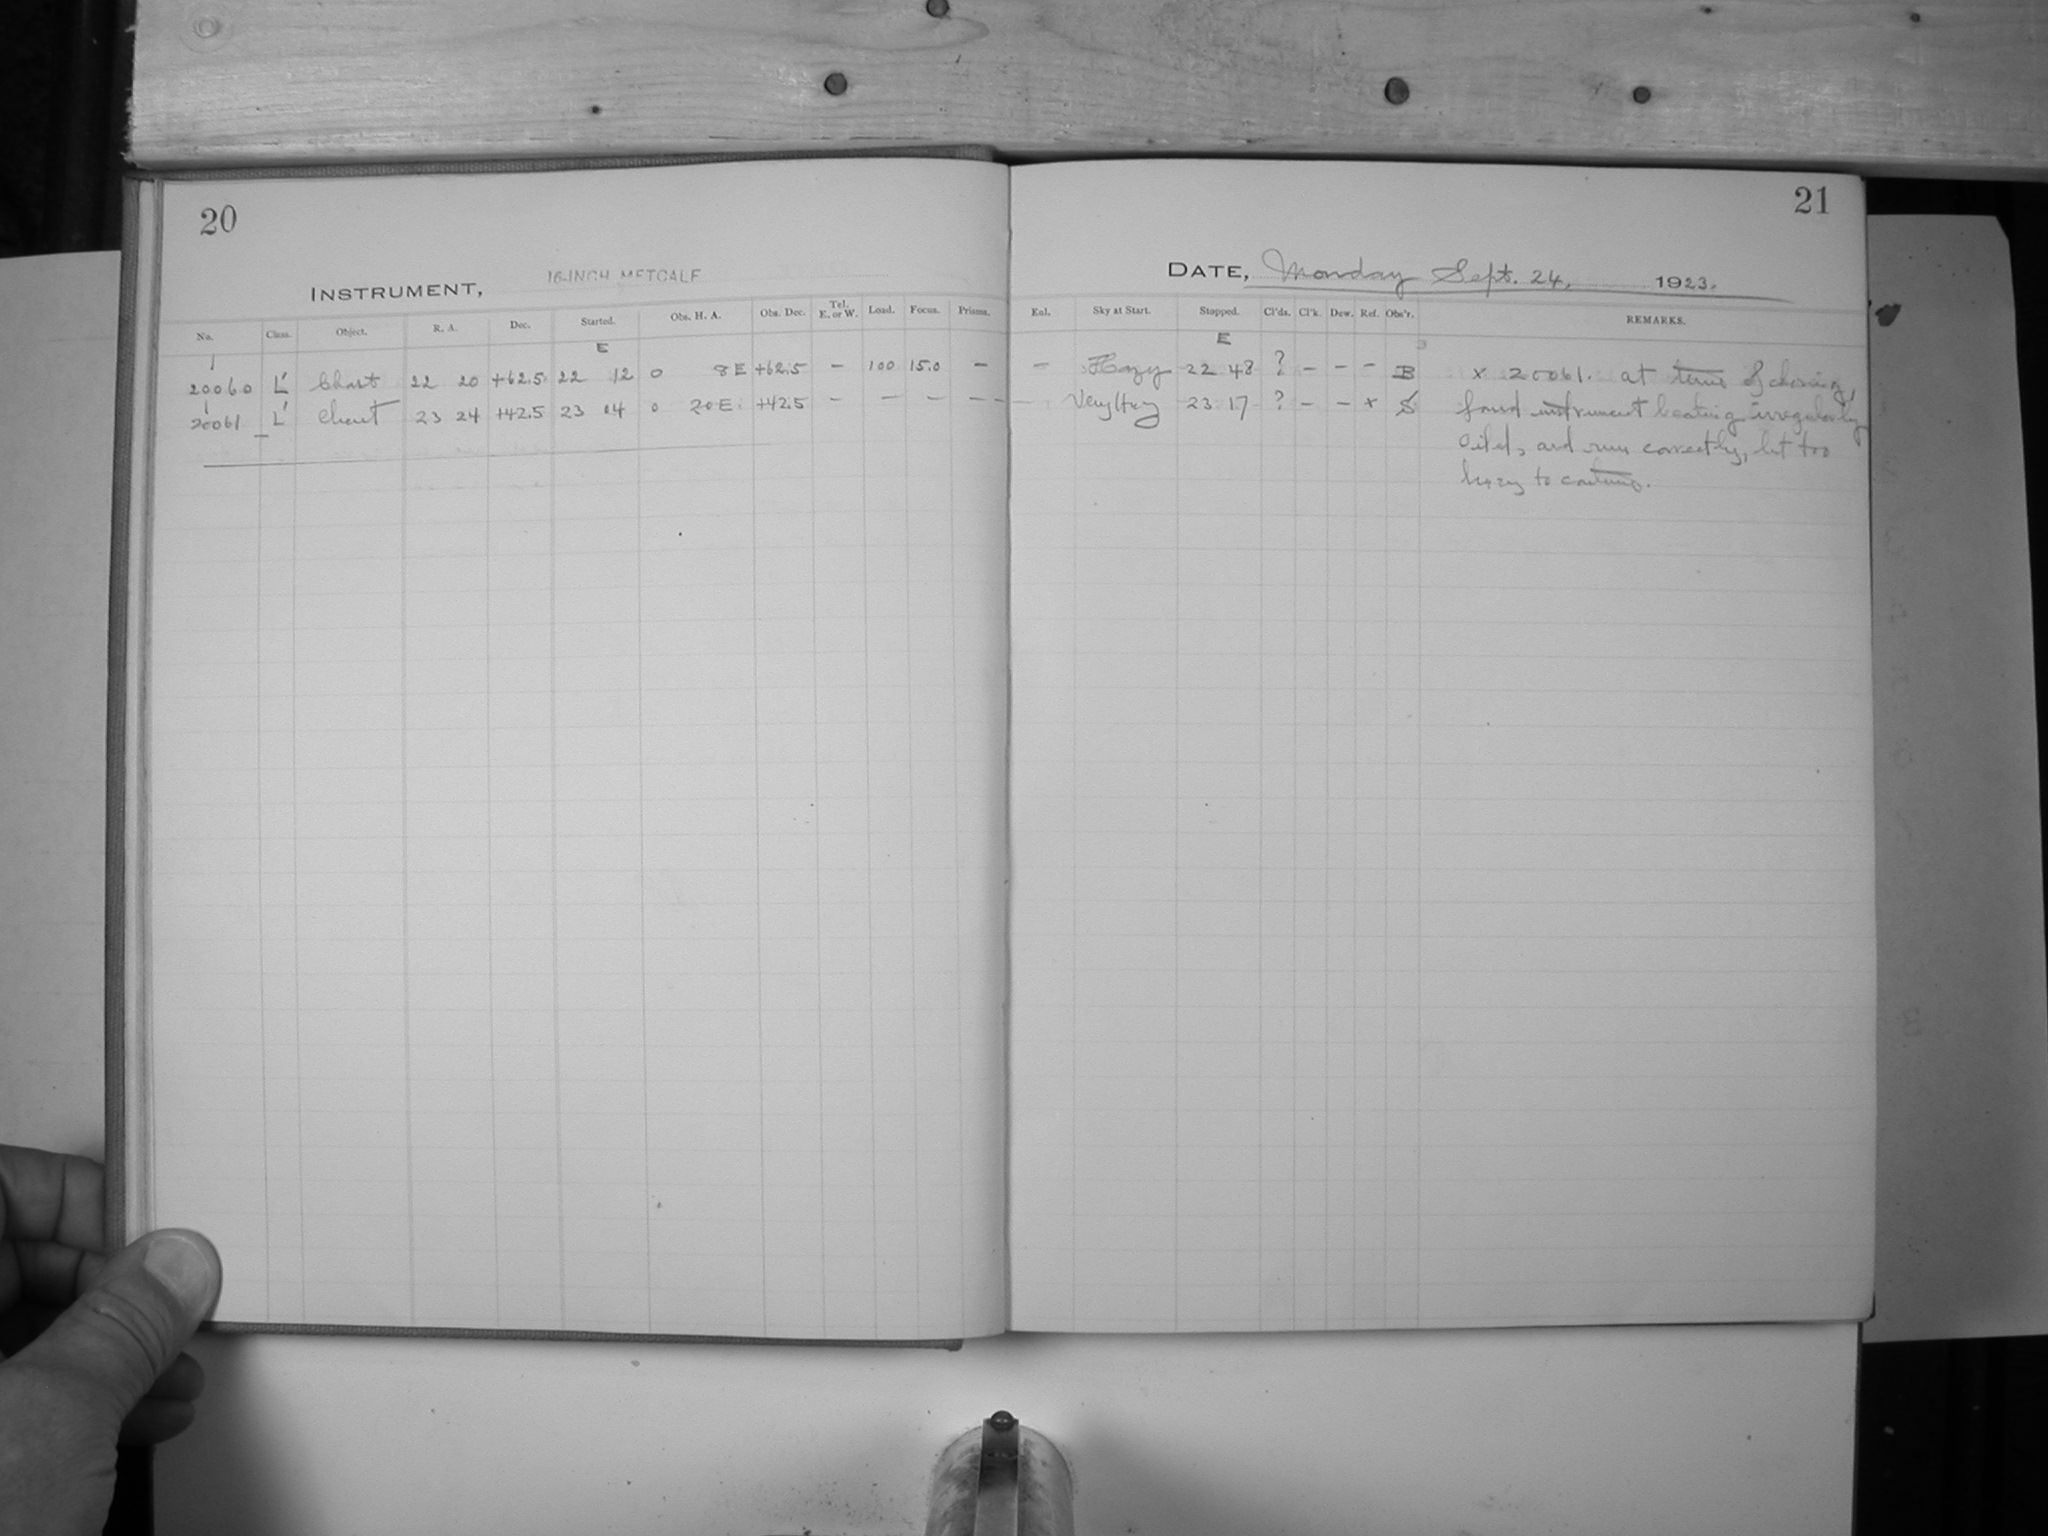 20
21
INSTRUMENT, 16-INCH METCALF
DATE, Monday Sept. 24, 1923.
No. Class. Object. R. A. Dec. Started. Obs. H. A. Obs. Dec. Tel. E. or W. Load. Focus. Prisms. Eal. Sky at Start. Stopped. Cl'ds. Cl'k. Dew. Ref. Obs'r. REMARKS.
E E
20060 L' Chart 22 20 +62.5 22 12 0 8 E +62.5 - 100 15.0 - - Hazy 22 48 ? - - - B x 20061. at time of closing,
20061 L' Chart 23 24 +42.5 23 04 0 20 E. +42.5 - - - - - Very Hazy 23 17 ? - - x S found instrument beating irregularly
Oiled, and runs correctly, but too
hazy to continue.